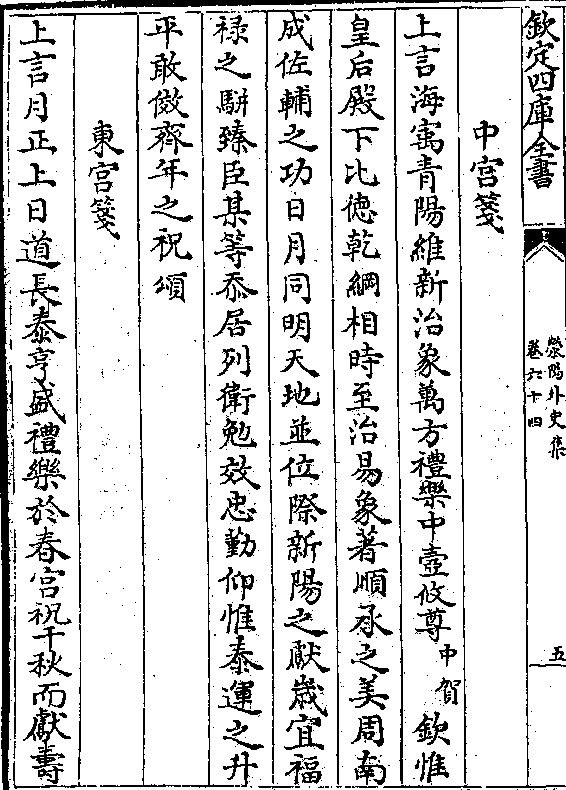 欽定四庫全書
滎陽外史集
卷六十四
五
中宮箋
上言海㝢青陽維新治象萬方禮樂中壼攸尊中賀欽惟
皇后殿下比德乾綱相時至治易象著順承之美周南
成佐輔之功日月同明天地並位際新陽之獻歲宜福
禄之駢臻臣某等忝居列衛勉效忠勤仰惟泰運之升
平敢傚齊年之祝頌
東宮箋
上言月正上日道長泰亨盛禮樂於春宮祝千秋而獻壽